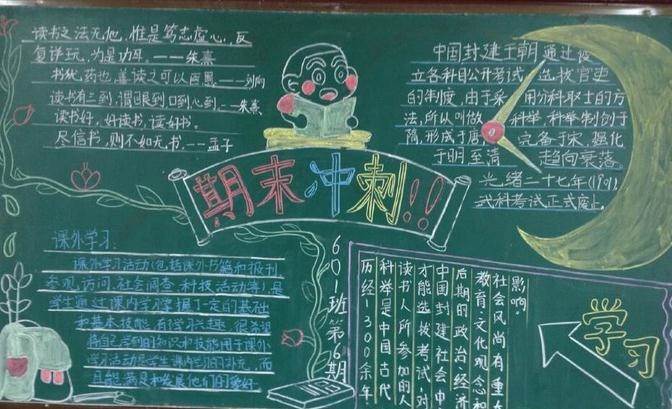 读书之法无他，惟是笃志虚心，反
复详玩，为是功耳。——朱熹
书犹药也，善读之可以医愚。——刘向
读书有三到，谓眼到口到心到。——朱熹
读书好，好读书，读好书。
尽信书，则不如无书。——孟子
期末冲刺!!
中国封建王朝通过设
立各科目公开考试，选拔官吏
的制度，由于采用分科取士的方
法，所以叫做科举，科举制创于
隋，形成于唐，完备于宋，强化
于明至清，趋向衰落
光绪二十七年(1901)
武科考试正式废止。
课外学习：
课外学习活动(包括课外书籍和报刊、
参观、访问、社会调查、科技活动等)是
学生通过课内学习掌握了一定的基础
和基本技能，有学习兴趣，很希望
将自己学到的知识和技能用于课外
学习活动是学生课内学习的补充，而
且能满足和发展他们的爱好。
601班第6期
影响。
社会风尚有重大
教育、文化观念和
后期的政治、经济
中国封建社会中
才能选拔考试，对
读书人所参加的人
科举是中国古代
历经1300余年，
学习